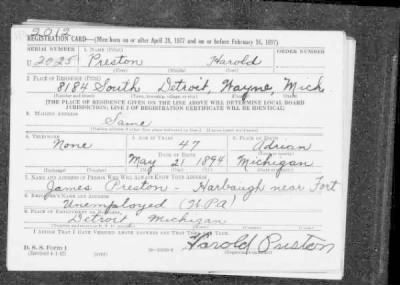 2012
REGISTRATION CARD—(Men born on or after April 28, 1877 and on or before February 16, 1897)
SERIAL NUMBER 1. NAME (Print) ORDER NUMBER
U 2025 Preston Harold
(Last) (First) (Middle)
2. PLACE OF RESIDENCE (Print)
8184 South Detroit, Wayne, Mich
(Number and street) (Town, township, village, or city) (County) (State)
[THE PLACE OF RESIDENCE GIVEN ON THE LINE ABOVE WILL DETERMINE LOCAL BOARD
JURISDICTION; LINE 2 OF REGISTRATION CERTIFICATE WILL BE IDENTICAL]
3. MAILING ADDRESS
Same
[Mailing address if other than place indicated on line 2. If same insert word same]
4. TELEPHONE 5. AGE IN YEARS 6. PLACE OF BIRTH
None 47 Adrian
DATE OF BIRTH
May 21 1894 Michigan
(Exchange) (Number) (Mo.) (Day) (Yr.) (State or country)
7. NAME AND ADDRESS OF PERSON WHO WILL ALWAYS KNOW YOUR ADDRESS
James Preston - Harbaugh near Fort
8. EMPLOYER'S NAME AND ADDRESS
Unemployed (WPA)
9. PLACE OF EMPLOYMENT OR BUSINESS
Detroit Michigan
(Number and street or R. F. D. number) (Town) (County) (State)
I AFFIRM THAT I HAVE VERIFIED ABOVE ANSWERS AND THAT THEY ARE TRUE.
D. S. S. Form 1
(Revised 4-1-42) Harold Preston